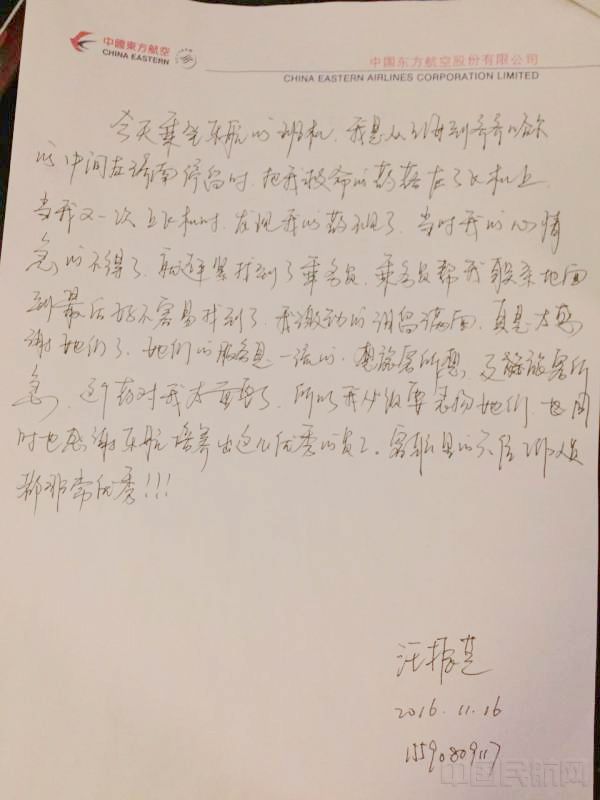 中國東方航空
CHINA EASTERN
中国东方航空股份有限公司
CHINA EASTERN AIRLINES CORPORATION LIMITED
今天乘坐东航的班机，我是从上海到齐齐哈尔
的中间在济南停留时，把我救命的药落在了飞机上
当我又一次上飞机时，发现我的药不见了，当时我的心情
急的不得了，就赶紧找到了乘务员，乘务员帮我联系地面
到最后好不容易找到了，我激动的泪流满面，真是太感
谢她们了，她们的服务是一流的，想旅客所想，急旅客所
急，这个药对我太重要了，所以我必须要表扬她们，也同
时也感谢东航培养出这么优秀的员工，客舱里的工作人员
都非常优秀!!!
汪振
2016.11.16
15590809117
中国民航网